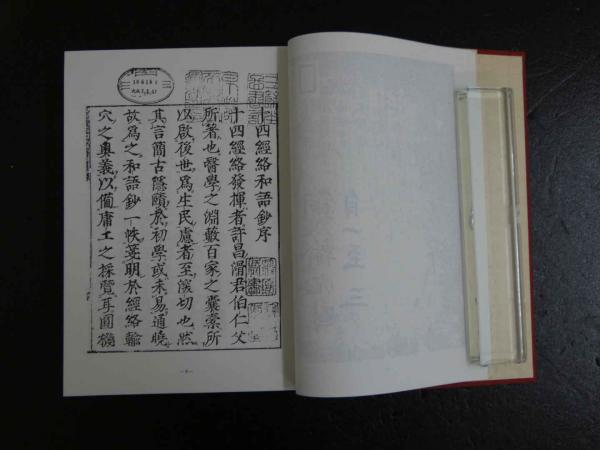 十四經絡和語鈔序
十四經絡發揮者許昌滑君伯仁父
所著也醫學之淵藪百家之囊槖所
以啟後世爲生民慮者至深切也然
其言簡古隱賾於初學或未易通曉
故爲之和語鈔一帙箋明於經絡輸
穴之奧義以備庸工之採覽耳圓機
自一至三